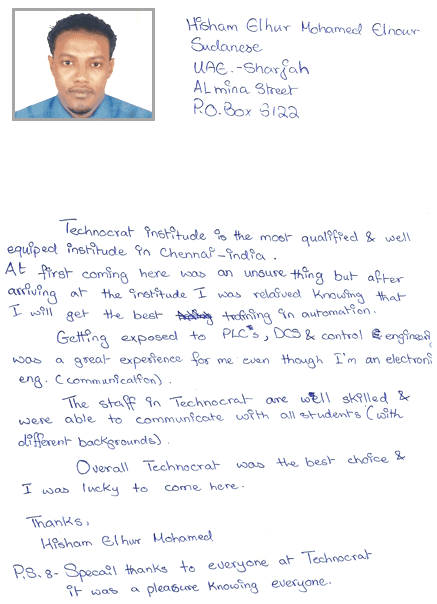 Hisham Elhur Mohamed Elnour
Sudanese
UAE.-Sharjah
ALmina Street
P.O.Box 3122
Technocrat institude is the most qualified & well
equiped institude in Chennai-india.
At first coming here was an unsure thing but after
arriving at the institude I was relaived knowing that
I will get the best training in automation.
Getting exposed to PLC's, DCS & control engineri
was a great experience for me even though I'm an electroni
eng. (communication).
The staff in Technocrat are well skilled &
were able to communicate with all students (with
different backgrounds).
Overall Technocrat was the best choice &
I was lucky to come here.
Thanks,
Hisham Elhur Mohamed
P.S. :- Specail thanks to everyone at Technocrat
it was a pleasure knowing everyone.